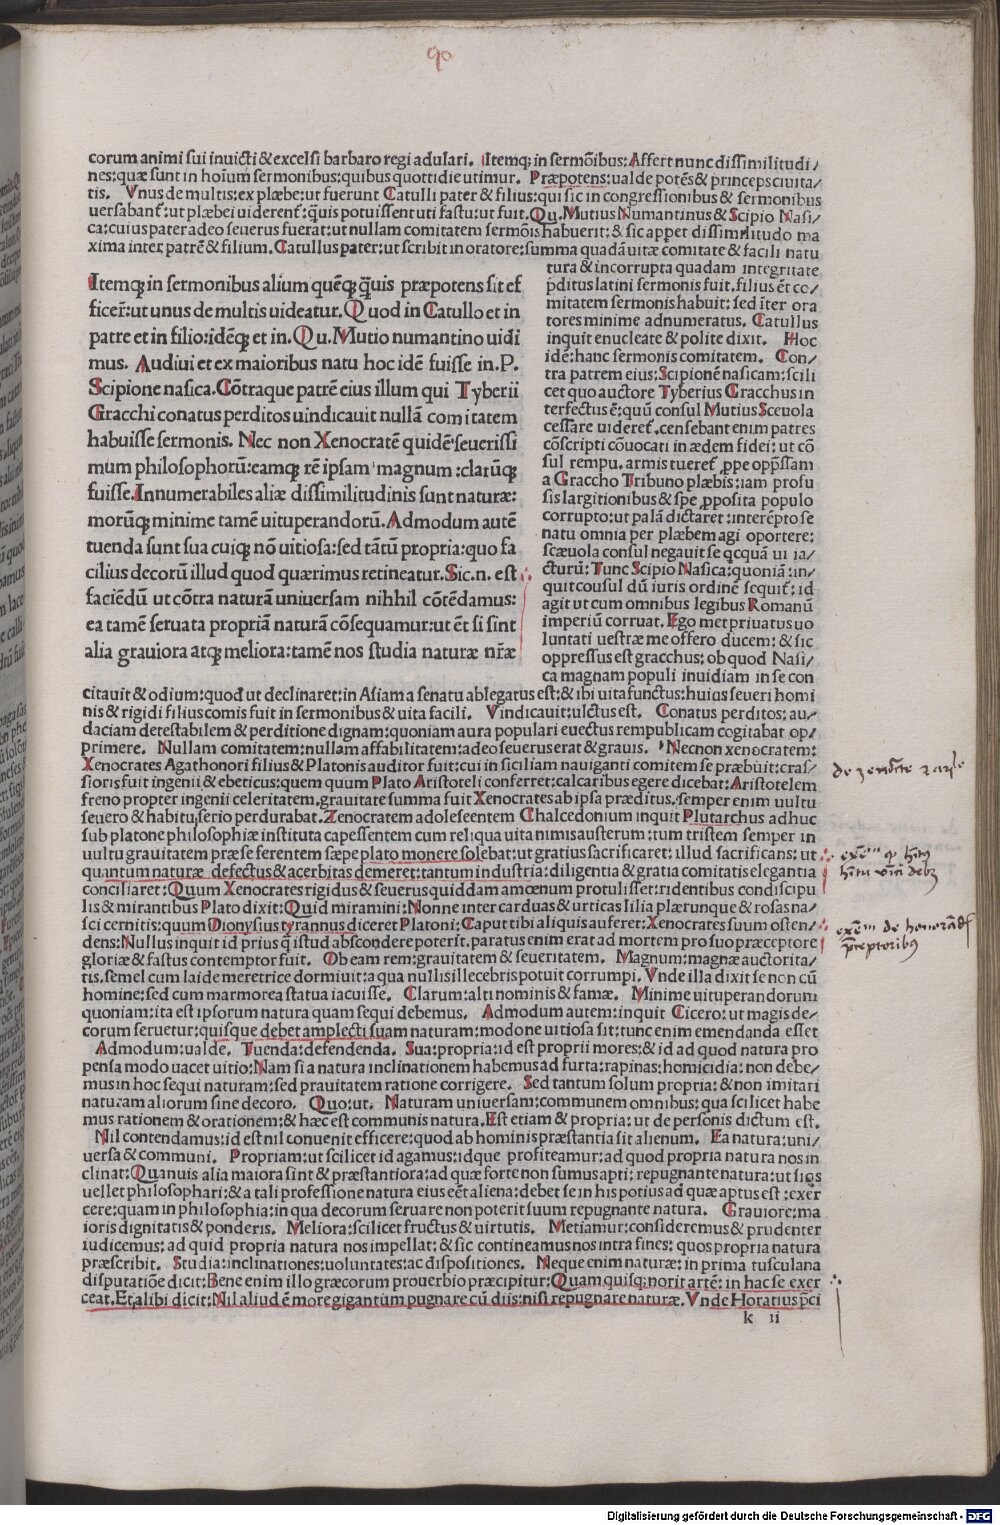 90
corum animi sui inuicti & excelsi barbaro regi adulari. Itemq; in sermõibus: Affert nunc dissimilitudi/
nes: quæ sunt in hoĩum sermonibus: quibus quottidie utimur. Præpotens: ualde potẽs & princeps ciuita/
tis. Vnus de multis: ex plæbe: ut fuerunt Catulli pater & filius: qui sic in congressionibus & sermonibus
uersabant̃: ut plæbei uiderent̃: q̃uis potuissent uti fastu: ut fuit. Qu. Mutius Numantinus & Scipio Nasi/
ca: cuius pater adeo seuerus fuerat: ut nullam comitatem sermõis habuerit: & sic appet dissimilitudo ma
xima inter patrẽ & filium. Catullus pater: ut scribit in oratore: summa quadã uitæ comitate & facili natu
tura & incorrupta quadam integritate
p̃ditus latini sermonis fuit. filius ẽt co/
mitatem sermonis habuit: sed ĩter ora
tores minime adnumeratus. Catullus
inquit enucleate & polite dixit. Hoc
idẽ: hanc sermonis comitatem. Con/
tra patrem eius: Scipionẽ nasicam: scili
cet quo auctore Tyberius Gracchus in
terfectus ẽ: quũ consul Mutius Sceuola
cessare uideret̃. censebant enim patres
cõscripti cõuocati in ædem fidei: ut cõ
sul rempu. armis tueret̃ ꝓpe opp̃ssam
a Graccho Tribuno plæbis: iam profu
sis largitionibus & spe ꝓposita populo
corrupto: ut palã dictaret: interẽpto se
natu omnia per plæbem agi oportere:
scæuola consul negauit se qcquã ui ia/
cturũ: Tunc Scipio Nasica: quoniã: in/
quit cousul dũ iuris ordinẽ sequit̃: id
agit ut cum omnibus legibus Romanũ
imperiũ corruat. Ego met priuatus uo
luntati uestræ me offero ducem: & sic
oppressus est gracchus: ob quod Nasi/
ca magnam populi inuidiam in se con
Itemq; in sermonibus alium quẽq; q̃q̃uis præpotens sit ef
ficer̃: ut unus de multis uideatur. Quod in Catullo et in
patre et in filio: idẽq; et in. Qu. Mutio numantino uidi
mus. Audiui et ex maioribus natu hoc idẽ fuisse in. P.
Scipione nasica. Cõtraque patrẽ eius illum qui Tyberii
Gracchi conatus perditos uindicauit nullã comitatem
habuisse sermonis. Nec non Xenocratẽ quidẽ seuerissi
mum philosophorũ: eamq; rẽ ipsam magnum: clarũq;
fuisse. Innumerabiles aliæ dissimilitudinis sunt naturæ:
morũq; minime tamẽ uituperandorũ. Admodum autẽ
tuenda sunt sua cuiq; nõ uitiosa: sed tãtũ propria: quo fa
cilius decorũ illud quod quærimus retineatur. Sic. n. est
faciẽdũ ut cõtra naturã uniuersam nihhil cõtẽdamus:
ea tamẽ seruata propriã naturã cõsequamur: ut ẽt si sint
alia grauiora atq; meliora: tamẽ nos studia naturæ nr̃æ
citauit & odium: quod ut declinaret: in Asiam a senatu ablegatus est: & ibi uita functus: huius seueri homi
nis & rigidi filius comis fuit in sermonibus & uita facili. Vindicauit: ulctus est. Conatus perditos: au/
daciam detestabilem & perditione dignam: quoniam aura populari euectus rempublicam cogitabat op/
primere. Nullam comitatem: nullam affabilitatem: adeo seuerus erat & grauis. Nec non xenocratem:
Xenocrates Agathonori filius & Platonis auditor fuit: cui in siciliam nauiganti comitem se præbuit: cras/
sioris fuit ingenii & ebeticus: quem quum Plato Aristoteli conferret: calcaribus egere dicebat: Aristotelem
freno propter ingenii celeritatem. grauitate summa fuit Xenocrates ab ipsa præditus. semper enim uultu
seuero & habitu, serio perdurabat. Zenocratem adolesentem Chalcedonium inquit Plutarchus adhuc
sub platone philosophiæ instituta capessentem cum reliqua uita nimis austerum: tum tristem semper in
uultu grauitatem præse ferentem sæpe plato monere solebat: ut gratius sacrificaret: illud sacrificans: ut
quantum naturæ defectus & acerbitas demeret: tantum industria: diligentia & gratia comitatis elegantia
conciliaret: Quum Xenocrates rigidus & seuerus quiddam amœnum protulisset: ridentibus condiscipu
lis & mirantibus Plato dixit: Quid miramini: Nonne inter carduas & urticas lilia plærunque & rosas na/
sci cernitis: quum Dionysius tyrannus diceret Platoni: Caput tibi aliquis auferet: Xenocrates suum osten/
dens: Nullus inquit id prius q̃ istud abscondere poterit. paratus enim erat ad mortem pro suo præceptore
gloriæ & fastus contemptor fuit. Ob eam rem: grauitatem & seueritatem. Magnum: magnæ auctorita/
tis, semel cum laide meretrice dormiuit: a qua nullis illecebris potuit corrumpi. Vnde illa dixit se non cũ
homine: sed cum marmorea statua iacuisse. Clarum: alti nominis & famæ. Minime uituperandorum
quoniam: ita est ipsorum natura quam sequi debemus. Admodum autem: inquit Cicero: ut magis de/
corum seruetur: quisque debet amplecti suam naturam: modo ne uitiosa sit: tunc enim emendanda esset
Admodum: ualde. Tuenda: defendenda. Sua: propria: id est proprii mores: & id ad quod natura pro
pensa modo uacet uitio: Nam si a natura inclinationem habemus ad furta: rapinas: homicidia: non debe/
mus in hoc sequi naturam: sed prauitatem ratione corrigere. Sed tantum solum propria: & non imitari
naturam aliorum sine decoro. Quo: ut. Naturam uniuersam: communem omnibus: qua scilicet habe
mus rationem & orationem: & hæc est communis natura. Est etiam & propria: ut de personis dictum est.
Nil contendamus: id est nil conuenit efficere: quod ab hominis præstantia sit alienum. Ea natura: uni/
uersa & communi. Propriam: ut scilicet id agamus: idque profiteamur: ad quod propria natura nos in
clinat: Quanuis alia maiora sint & præstantiora: ad quæ forte non sumus apti: repugnante natura: ut si qs
uellet philosophari: & a tali professione natura eius eẽt aliena: debet se in his potius ad quæ aptus est: exer
cere: quam in philosophia: in qua decorum seruare non poterit suum repugnante natura. Grauiore: ma
ioris dignitatis & ponderis. Meliora: scilicet fructus & uirtutis. Metiamur: consideremus & prudenter
iudicemus: ad quid propria natura nos impellat: & sic contineamus nos intra fines: quos propria natura
præscribit. Studia: inclinationes: uoluntates: ac dispositiones. Neque enim naturæ: in prima tusculana
disputatiõe dicit: Bene enim illo græcorum prouerbio præcipitur: Quam quisq; norit artẽ: in hac se exer
ceat. Et alibi dicit: Nil aliud ẽ more gigantum pugnare cũ diis: nisi repugnare naturæ. Vnde Horatius p̃ci
k ii
de zenocrate
exem
exem de honorãd
p̃ceptoribus
Digitalisierung gefördert durch die Deutsche Forschungsgemeinschaft - DFG